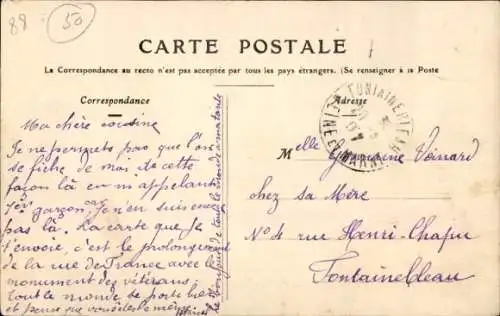 88
50
CARTE POSTALE
La Correspondance au recto n'est pas acceptée par tous les pays étrangers. (Se renseigner à la Poste
Correspondance
Adresse
Ma chère cousine
Je ne permets pas que l'on
se fiche de moi de cette
façon là en m'appelant
garçon car je n'en suis encore
pas là. La carte que je
t'envoie, c'est le prolongement
de la rue de France avec le
monument des vétérans
tout le monde se porte bien
et pense que vous êtes de même.
Le bonjour de tout le monde à ma tante
FONTAINEBLEAU
SEINE ET MARNE
Melle Germaine Voinard
chez sa Mère
N°4 rue Henri-Chapu
Fontainebleau